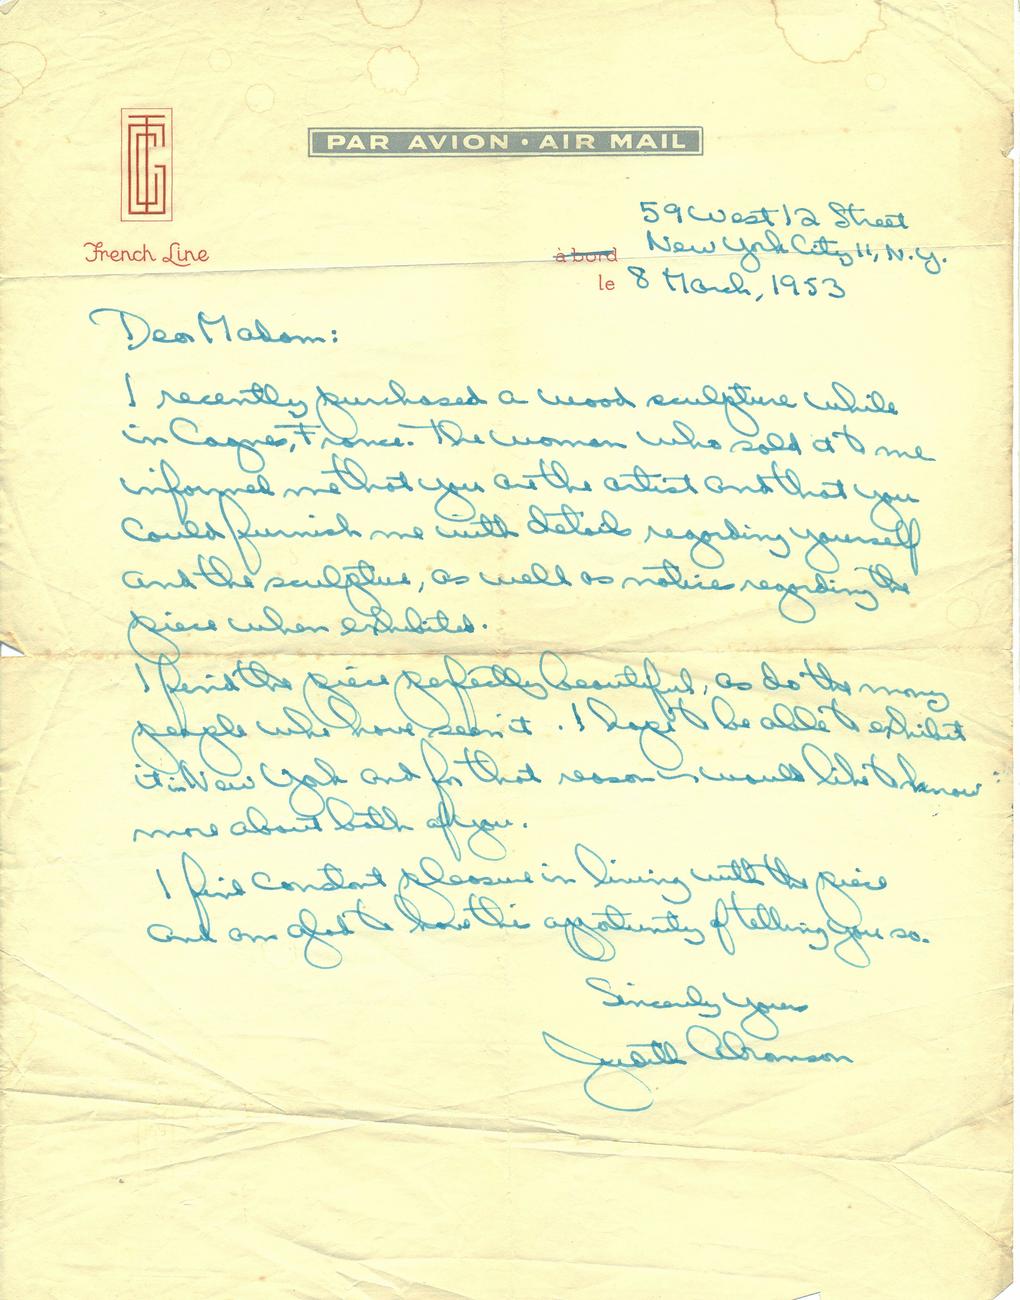 PAR AVION · AIR MAIL
French Line
59 West 12 Street
New York City 11, N.Y.
à bord
le 8 March, 1953
Dear Madam:
I recently purchased a wood sculpture while
in Cagnes, France. The woman who sold it to me
informed me that you are the artist and that you
could furnish me with details regarding yourself
and the sculpture, as well as notices regarding the
piece when exhibited.
I find the piece perfectly beautiful, as do the many
people who have seen it. I hope to be able to exhibit
it in New York and for that reason would like to know
more about both of you.
I find constant pleasure in living with the piece
and am glad to have this opportunity of telling you so.
Sincerely yours
Judith Abramson